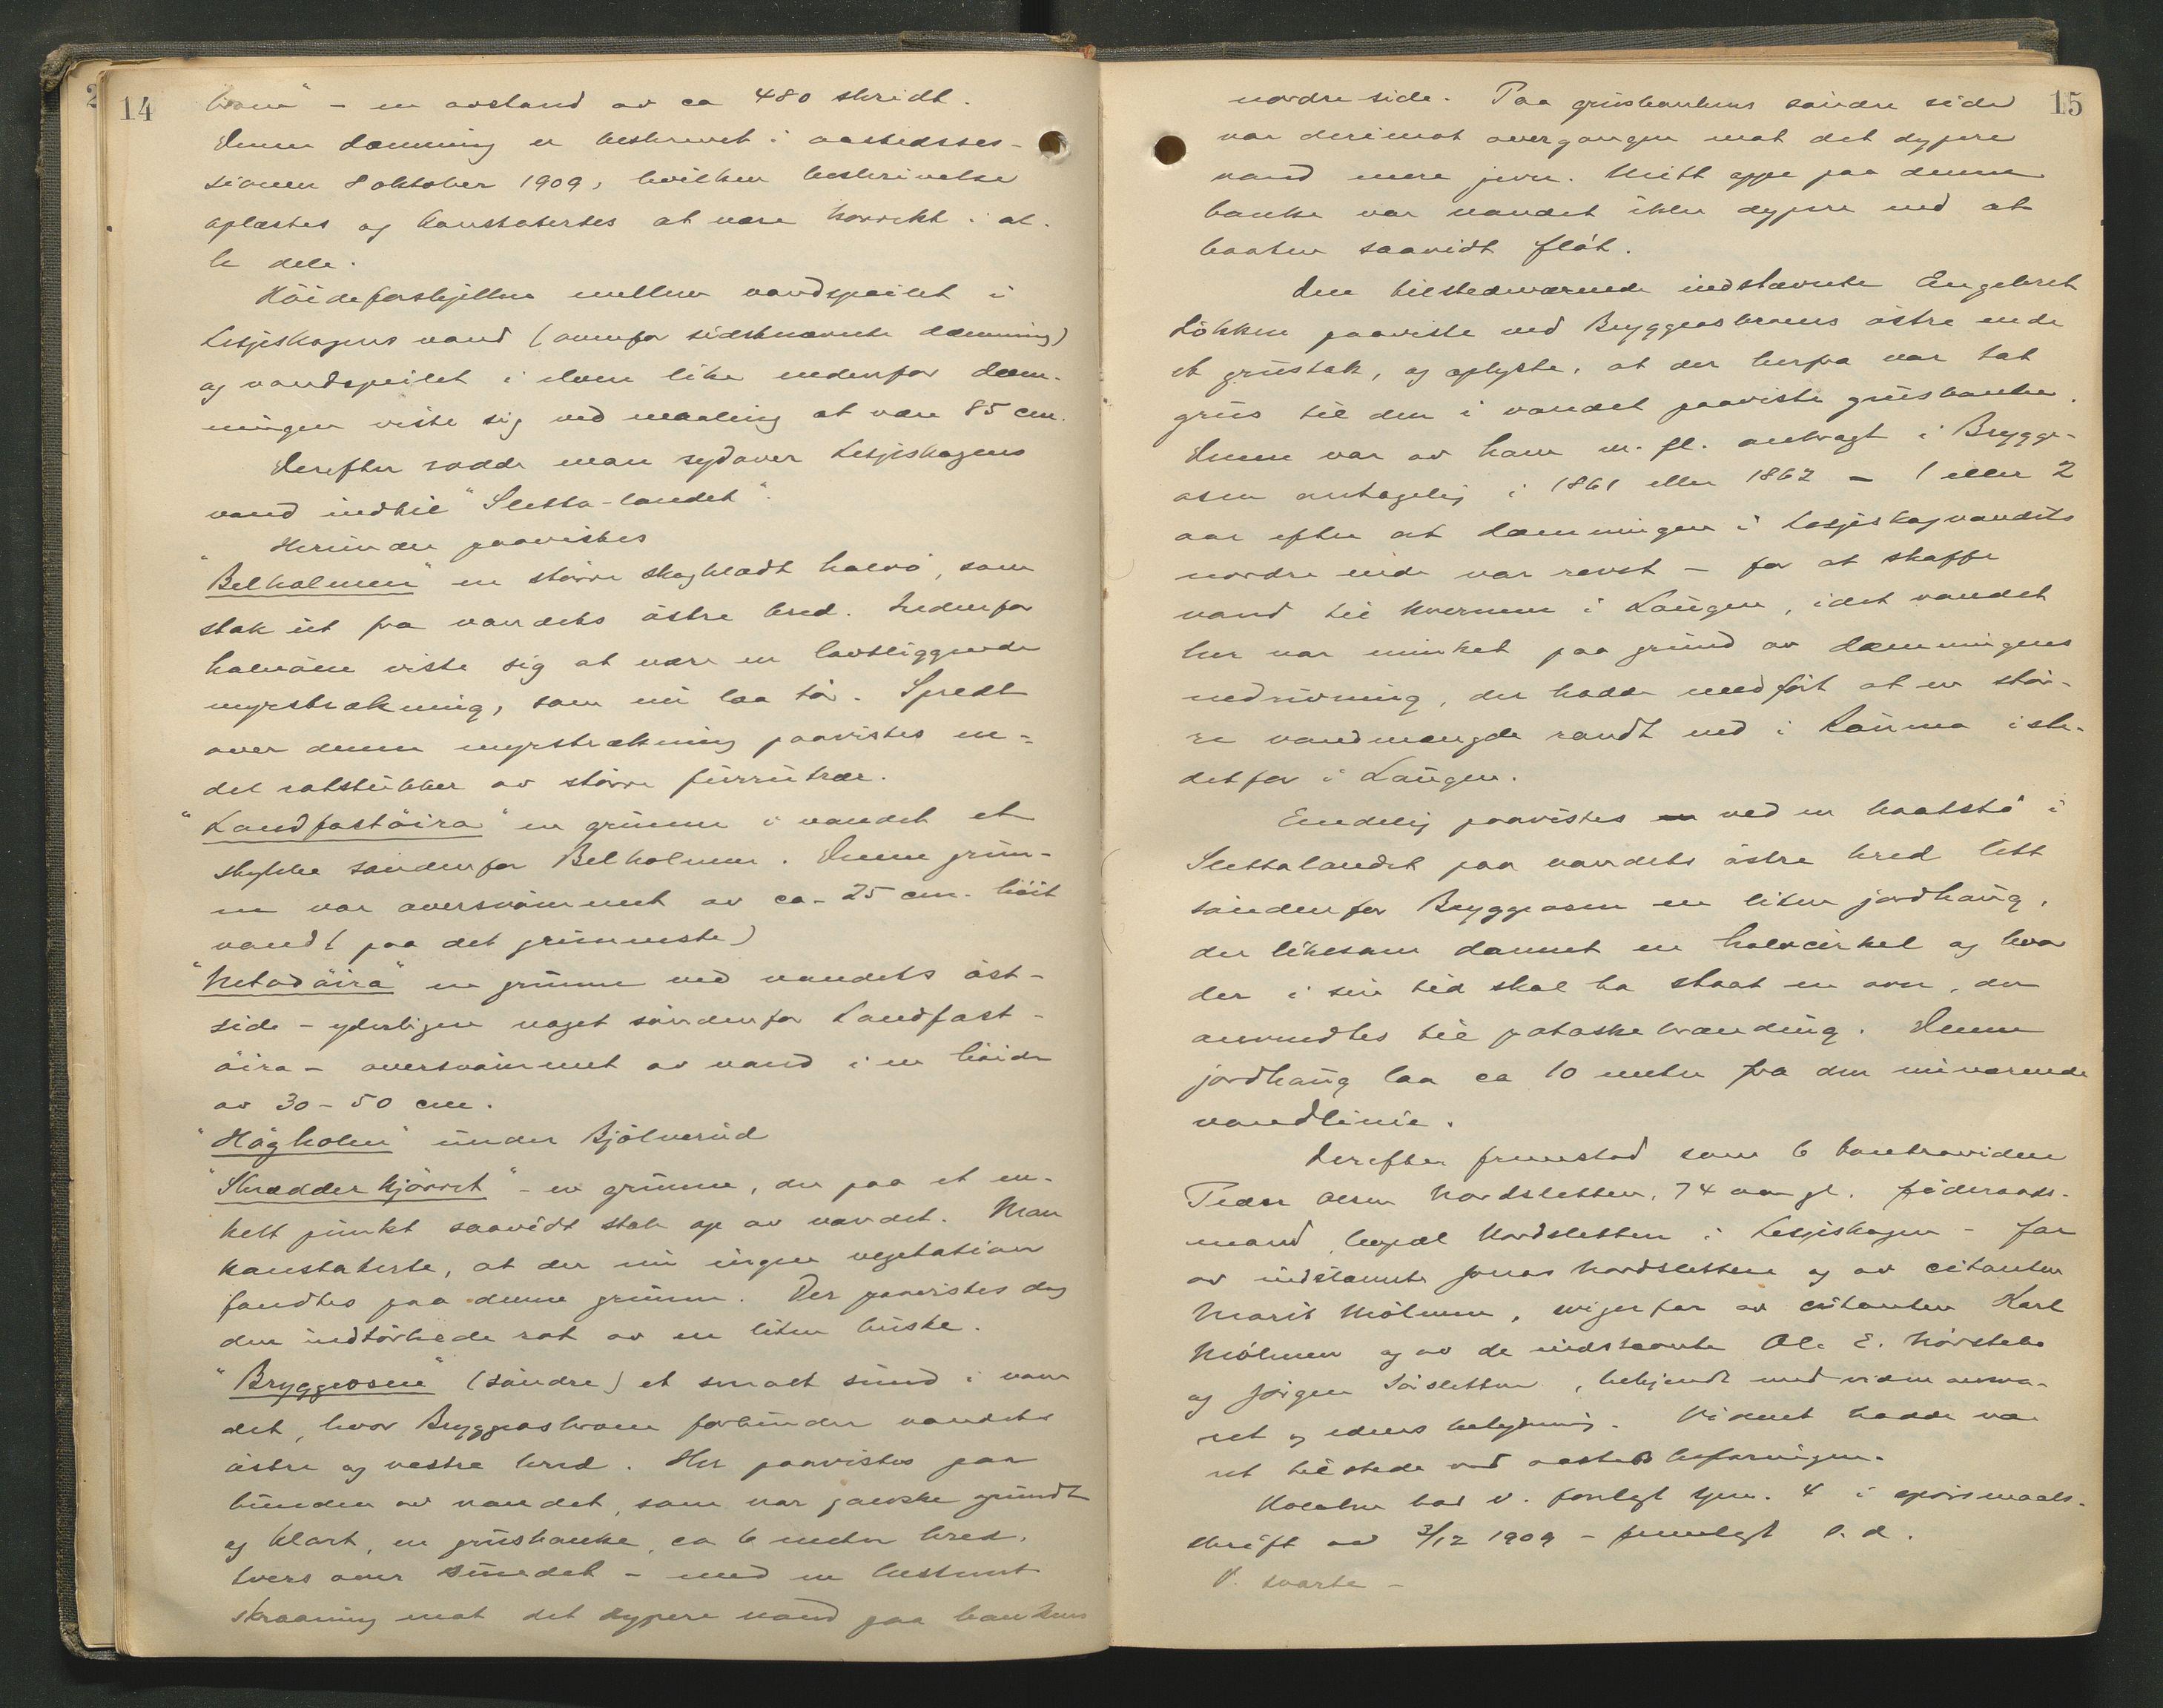 14
broen" - en avstand av ca 480 skridt.
Denne dæmning er beskrevet i aastedsses-
sionen 8 oktober 1909, hvilken beskrivelse
oplæstes og konstatertes at være korrekt i al-
le dele.
Höideforskjellen mellem vandspeilet i
Lesjeskogens vand (ovenfor sidstnævnte dæmning)
og vandspeilet i elven like nedenfor dæm-
ningen viste sig ved maaling at være 85 cm.
Derefter rodde man sydover Lesjeskogens
vand indtil "Sletta-landet".
Herunder paavistes
"Belholmen" en större skogklædt halvö, som
stak ut fra vandets östre bred. Indenfor
halvöen viste sig at være en lavtliggende
myrstrækning, som nu laa tör. Spredt
over denne myrstrækning paavistes en-
del rotstubber av större furutrær.
"Landfastöira" en grunne i vandet et
stykke söndenfor Belholmen. Denne grun-
ne var oversvömmet av ca. 25 cm. höit
vand (paa det grunneste)
"Netadöira" en grunne ved vandets öst-
side - yderligere noget söndenfor Landfast-
öira - oversvömmet av vand i en höide
av 30-50 cm.
"Högholm" under Bjölverud
"Skrædderkjörret" - en grunne, der paa et en-
kelt punkt saavidt stak op av vandet. Man
konstaterte, at der nu ingen vegetation
fandtes paa denne grunne. Der paavistes dog
den indtörkede rot av en liten buske.
"Bryggeosen" (söndre) et smalt sund i van-
det, hvor Bryggeosbroen forbinder vandets
östre og vestre bred. Her paavistes paa
bunden av vandet, som var ganske grundt
og klart, en grusbanke, ca 6 meter bred,
tvers over sundet - med en bestemt
skraaning mot det dypere vand paa bankens
15
nordre side. Paa grusbankens söndre side
var derimot overgangen mot det dypere
vand mere jevn. Midt oppe paa denne
banke var vandet ikke dypere end at
baaten saavidt flöt.
Den tilstedeværende indstævnte Engebret
Lökken paaviste ved Bryggeosbroens östre ende
et grustak, og oplyste, at der herfra var tat
grus til den i vandet paaviste grusbanke.
Denne var av ham m. fl. anbragt i Brygge-
osen antagelig i 1861 eller 1862 - 1 eller 2
aar efter at dæmningen i Lesjeskogvandets
nordre ende var revet - for at skaffe
vand til kvernene i Laugen, idet vandet
her var minket paa grund av dæmningens
nedrivning, der hadde medfört at en stör-
re vandmængde randt ned i Rauma iste-
detfor i Laugen.
Endelig paavistes ved en baatstö i
Slettalandet paa vandets östre bred litt
söndenfor Bryggeosen en liten jordhaug,
der likesom dannet en halvcirkel og hvor
der i sin tid skal ha staat en ovn, der
anvendtes til potaskebrænding. Denne
jordhaug laa ca 10 meter fra den nuværende
vandlinie.
Derefter fremstod som 6 kontravidne
Peder Olsen Nordsletten, 74 aar gl. föderaads-
mand, bopæl Nordsletten i Lesjeskogen - far
av indstævnte Jonas Nordsletten og av citanten
Marit Mölmen, svigerfar av citanten Karl
Mölmen og av de indstævnte Ole E. Nörstebö
og Jörgen Sörsletten, bekjendt med vidneansva-
ret og edens betydning. Vidnet hadde væ-
ret tilstede ved aastedsbefaringen.
Holaker bad v. forelagt spm. 4 i spörsmaals-
skrift av 3/12 1909 - fremlagt s.d.
V. svarte -